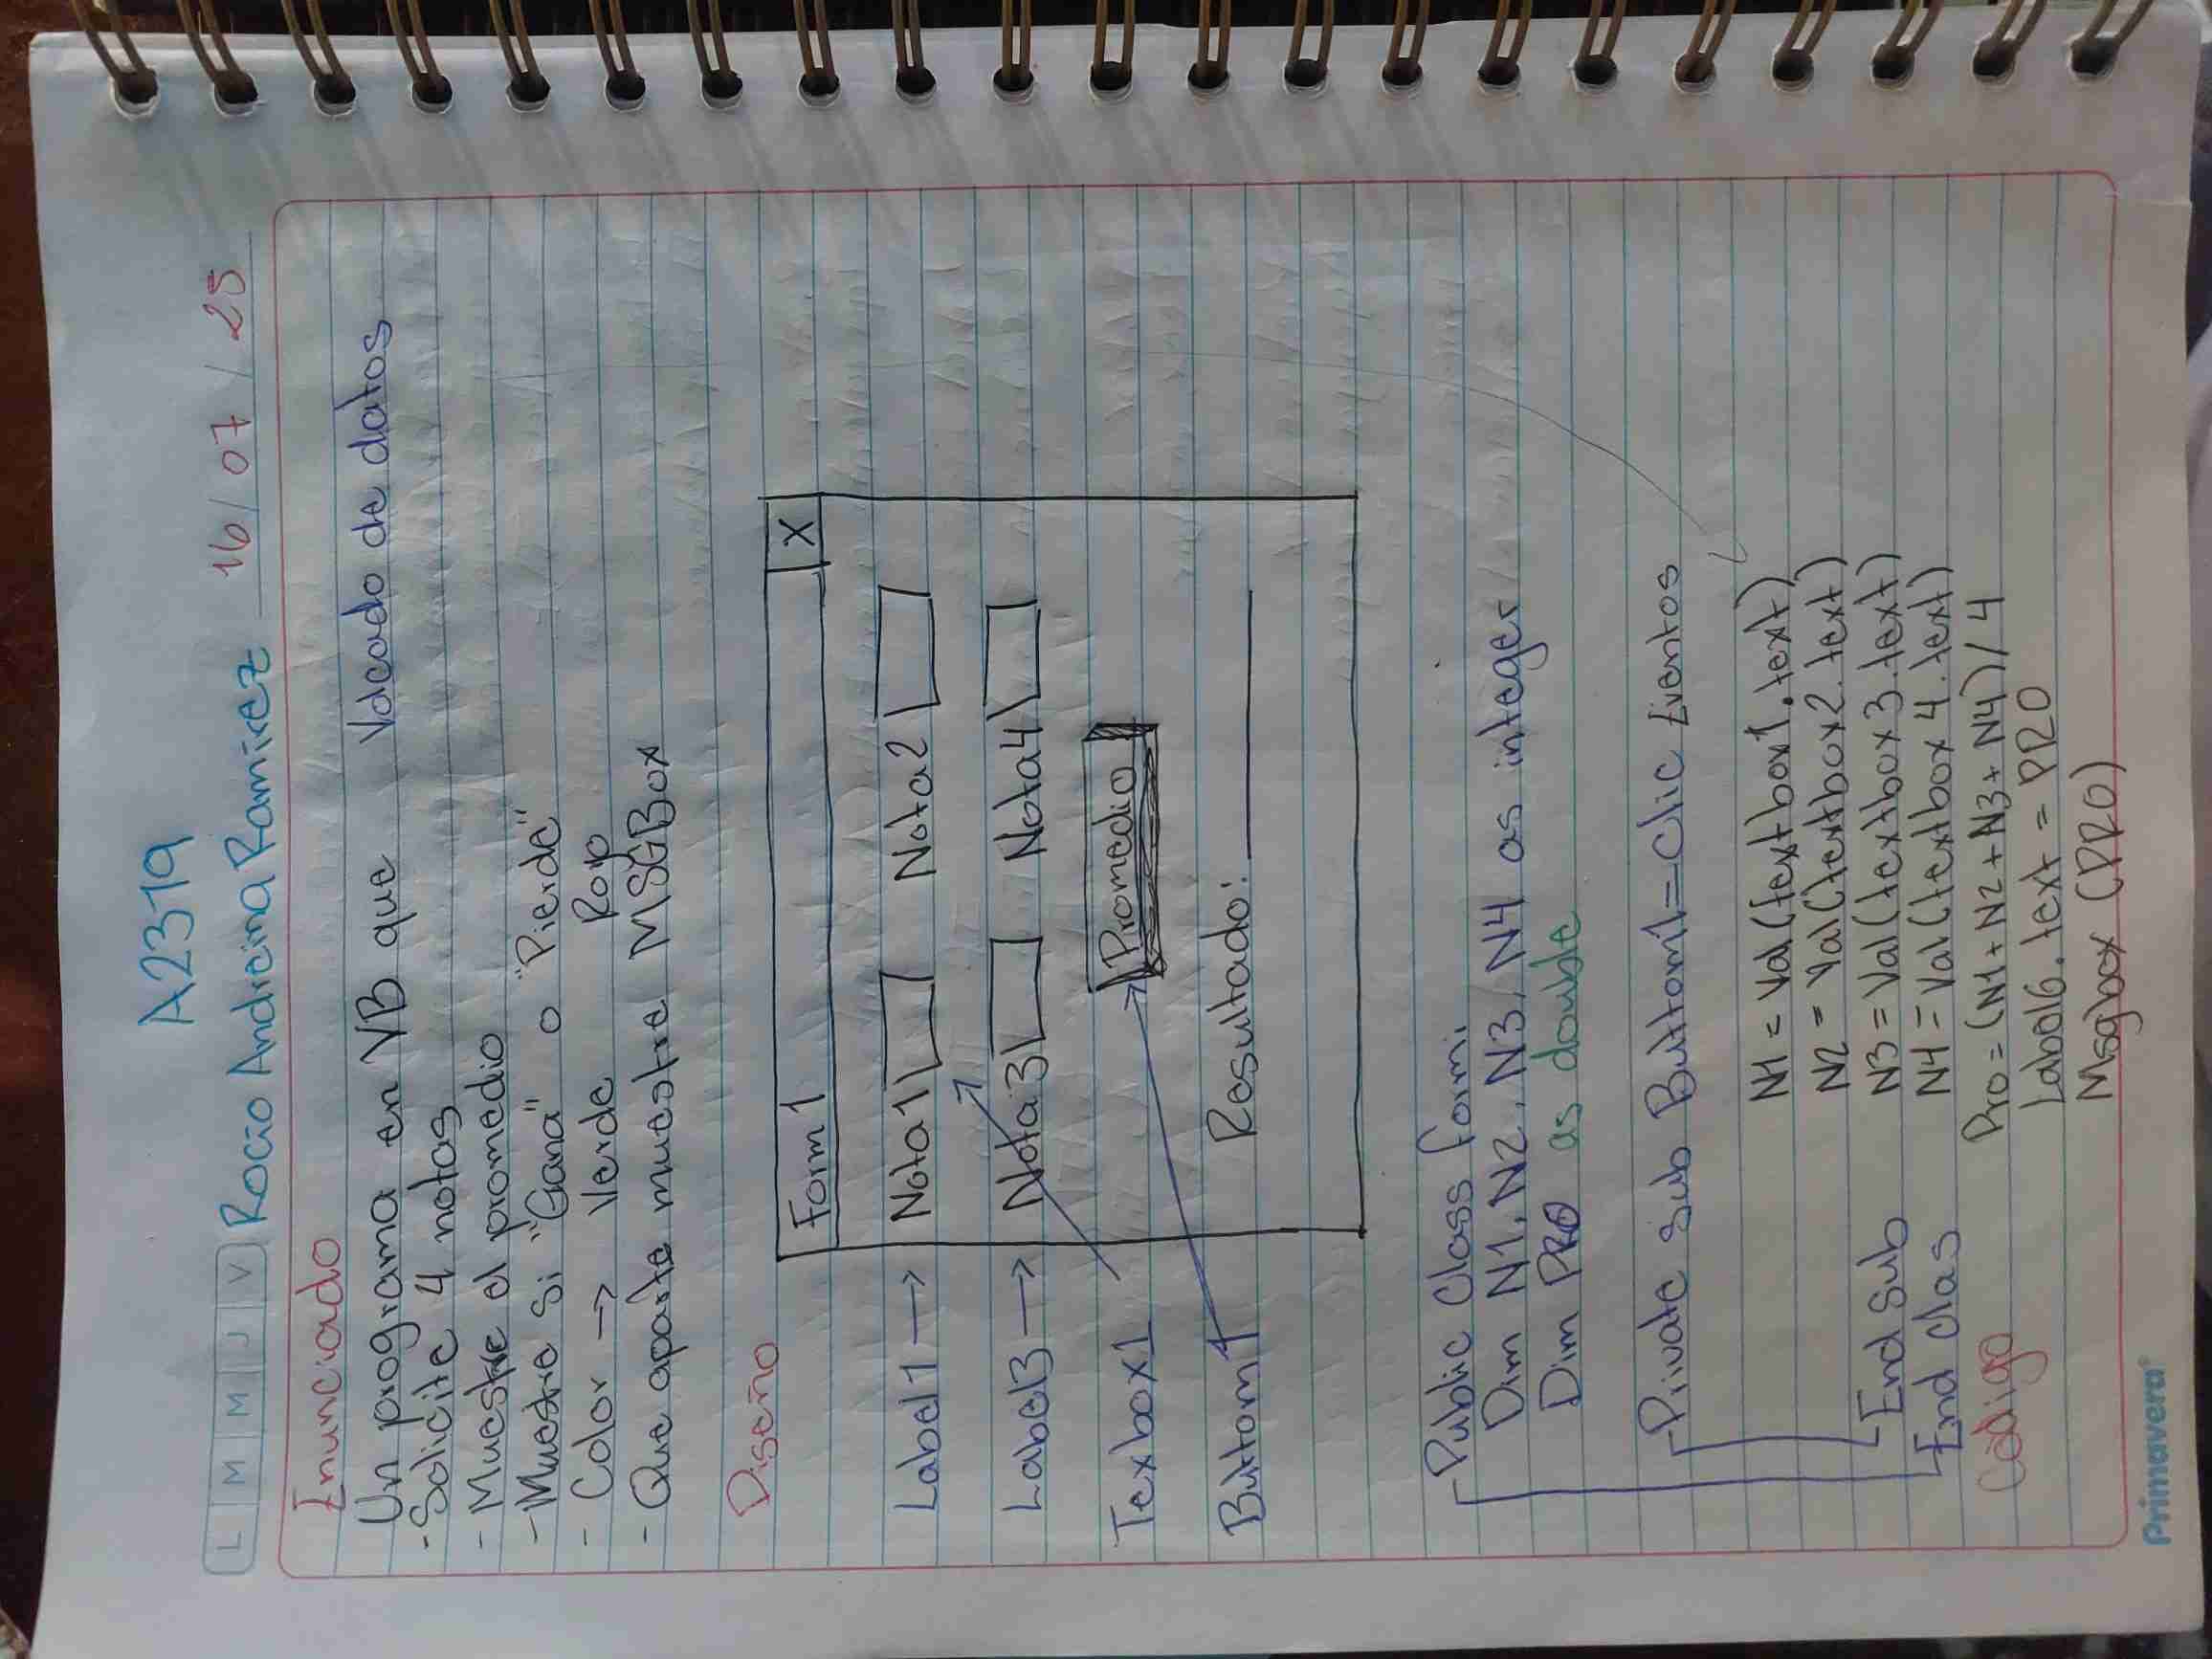 A2319
L M M J V Rocío Andreina Ramírez 16/07/25
Enunciado
Un programa en VB que Vaceado de datos
-Solicite 4 notas
-Muestre el promedio
-Muestre si "Gana" o "Pierde"
-Color → Verde Rojo
-Que aparte muestre MSGBox
Diseño
Form 1 X
Label1 → Nota1 Nota2
Label3 → Nota3 Nota4
Texbox1 Promedio
Buttom1 Resultado:
Public Class form1
Dim N1, N2, N3, N4 as integer
Dim PRO as double
Private Sub Buttom1=Clic Eventos
N1 = Val(textbox1.text)
N2 = Val(textbox2.text)
End Sub N3 = Val(textbox3.text)
End Clas N4 = Val(textbox4.text)
Código Pro = (N1 + N2 + N3 + N4) / 4
Label6.text = PRO
Msgbox (PRO)
Primavera®